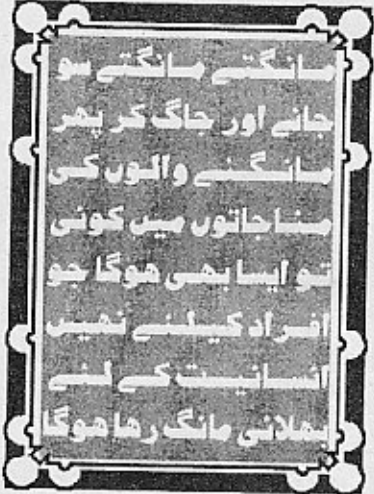 مانگتے مانگتے سو
جانے اور جاگ کر پھر
مانگنے والوں کی
مناجاتوں میں کوئی
تو ایسا بھی ہوگا جو
افراد کیلئے نہیں
انسانیت کے لئے
بھلائی مانگ رہا ہوگا